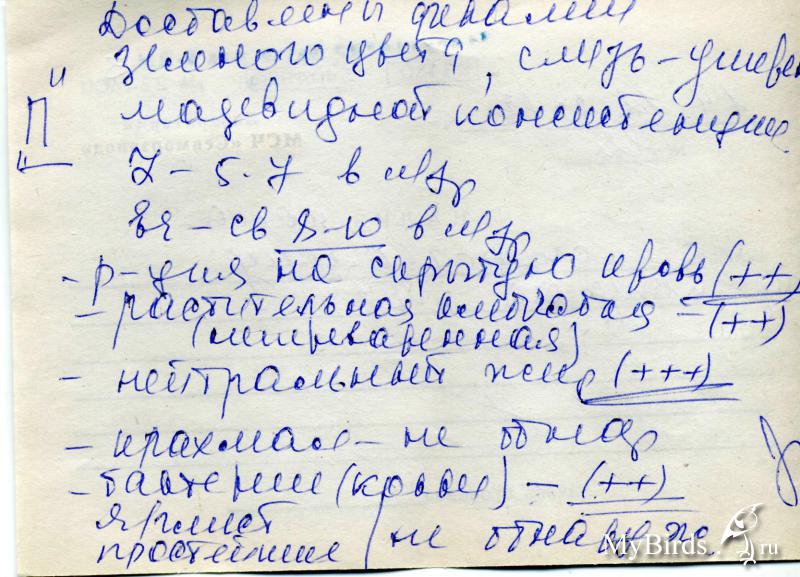 Доставлены фекалии
зеленого цвета, слизь - умерен
мазевидной консистенции
"П"
L - 5-7 в п/зр
Эр - св 8-10 в п/зр
- р-ция на скрытую кровь (++)
- растительная клетчатка - (++)
(непереваренная)
- нейтральный жир (+++)
- крахмал - не обнар
- бактерии (кокки) - (++)
Я/глист
простейшие / не обнаруж.
MyBirds.ru